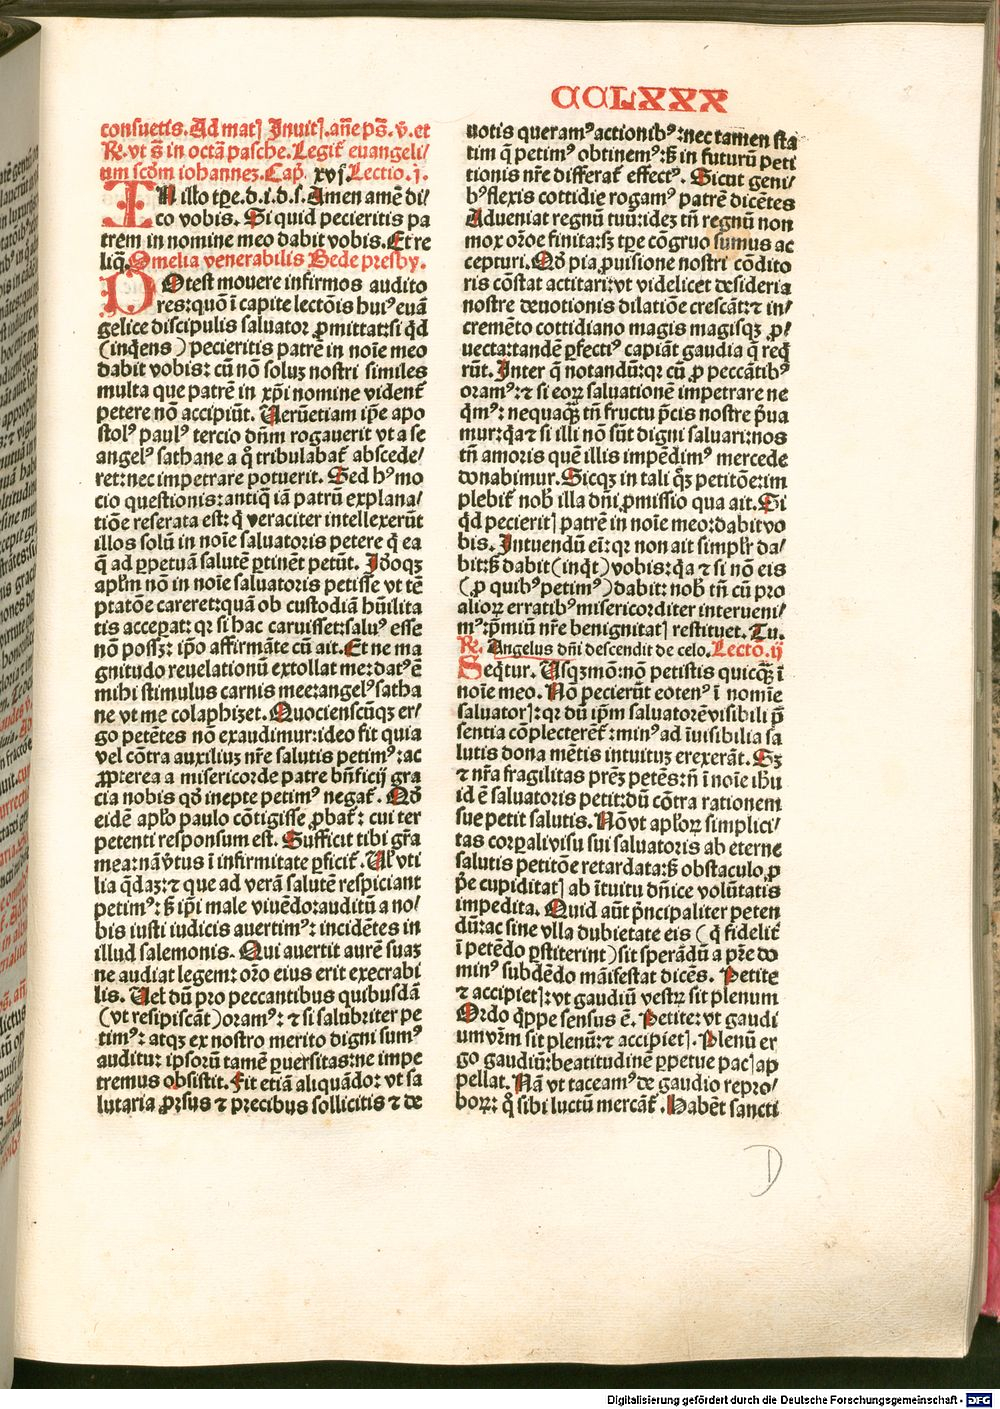 CCLXXX
consuetis. Ad mat⁊ Inuit⁊. añe pš. v̄. et
℞. vt š in octā pasche. Legit᷑ euangeli/
um scđm iohannez. Cap̄. xvj. Lectio .j.
IN illo tp̄e. d. i. d. s. Amen amē di/
co vobis. Si quid pecieritis pa
trem in nomine meo dabit vobis. Et re
liq̄. Omelia venerabilis Bede presby.
POtest mouere infirmos audito
res: quō ī capite lectōis huiꝰ euā
gelice discipulis saluator ꝓmittat: si qd̄
(inq̄ens) pecieritis patrē in noīe meo
dabit vobis: cū nō soluꝫ nostri similes
multa que patrē in xp̄i nomine vident᷑
petere nō accipiūt. Uerūetiam ip̄e apo
stolꝰ paulꝰ tercio dn̄m rogauerit vt a se
angelꝰ sathane a q̊ tribulabat᷑ abscede/
ret: nec impetrare potuerit. Sed hꝰ mo
cio questionis: antiq̄ iā patrū explana/
tiōe reserata est: q̄ veraciter intellexerūt
illos solū in noīe saluatoris petere q̄ ea
q̄ ad ꝑpetuā salutē ꝑtinēt petūt. Idoqꝫ
apl̄m nō in noīe saluatoris petisse vt tē
ptatōe careret: quā ob custodiā hūilita
tis acceꝑat: qꝛ si hac caruisset: saluꝰ esse
nō posset: ip̄o affirmāte cū ait. Et ne ma
gnitudo reuelationū extollat me: datꝰ ē
mihi stimulus carnis mee: angelꝰ satha
ne vt me colaphizet. Quocienscūqꝫ er/
go petētes nō exaudimur: ideo fit quia
vel cōtra auxiliuꝫ nr̄e salutis petimꝰ: ac
ꝓpterea a misericorde patre bn̄ficij gra
cia nobis qd̄ inepte petimꝰ negat᷑. Qd̄
eidē apl̄o paulo cōtigisse ꝓbat᷑: cui ter
petenti responsum est. Sufficit tibi gr̄a
mea: nā v̄tus ī infirmitate ꝑficit᷑. Ul̄ vti
lia q̄daꝫ: ⁊ que ad verā salutē respiciant
petimꝰ: sꝫ ip̄i male viuēdo: auditū a no/
bis iusti iudicis auertimꝰ: incidētes in
illud salemonis. Qui auertit aurē suaꝫ
ne audiat legem: or̄o eius erit execrabi
lis. Uel dū pro peccantibus quibusdā
(vt resipiscāt) oramꝰ: ⁊ si salubriter pe
timꝰ: atqꝫ ex nostro merito digni sumꝰ
auditu: ipsorū tamē ꝑuersitas: ne impe
tremus obsistit. Fit etiā aliquādo: vt sa
lutaria ꝓrsus ⁊ precibus sollicitis ⁊ de
uotis queramꝰ actionibꝰ: nec tamen sta
tim q̄ petimꝰ obtinemꝰ: sꝫ in futurū peti
tionis nr̄e differat᷑ effectꝰ. Sicut geni/
bꝰ flexis cottidie rogamꝰ patrē dicētes
Adueniat regnū tuū: ideꝫ tn̄ regnū non
mox or̄oe finita: sꝫ tp̄e cōgruo sumus ac
cepturi. Qd̄ pia ꝓuisione nostri cōdito
ris cōstat actitari: vt videlicet desideria
nostre deuotionis dilatiōe crescāt: ⁊ in/
cremēto cottidiano magis magisqꝫ ꝓ/
uecta: tandē ꝑfectiꝰ capiāt gaudia q̄ req̄
rūt. Inter q̄ notandū: qꝛ cū ꝓ peccātibꝰ
oramꝰ: ⁊ si eoꝝ saluationē impetrare ne
q̄mꝰ: nequaq̄ꝫ tn̄ fructu p̄cis nostre p̄ua
mur: q̄a ⁊ si illi nō sūt digni saluari: nos
tn̄ amoris quē illis impēdimꝰ mercede
donabimur. Sicqꝫ in tali q̊ꝫ petitōe: im
plebit᷑ nob̄ illa dn̄i ꝓmissio qua ait. Si
qd̄ pecierit⁊ patrē in noīe meo: dabit vo
bis. Intuendū ei̅: qꝛ non ait simpl̄r da/
bit: sꝫ dabit (inq̄t) vobis: q̄a ⁊ si nō eis
(ꝓ quibꝰ petimꝰ) dabit: nob̄ tn̄ cū pro
alioꝝ erratibꝰ misericorditer interueni/
mꝰ: p̄miū nr̄e benignitat⁊ restituet. Tu.
℞. Angelus dn̄i descendit de celo. Lectō. ij
Seqt̄ur. Usqꝫmō: nō petistis quicq̄ꝫ ī
noīe meo. Nō pecierūt eotenꝰ ī nomīe
saluator⁊: qꝛ dū ip̄m saluatorē visibili p̄
sentia cōplecterēt᷑: minꝰ ad īuisibilia sa
lutis dona mētis intuituꝫ erexerāt. Sꝫ
⁊ nr̄a fragilitas p̄reꝫ petēs: n̄ ī noīe ih̄u
id ē saluatoris petit: dū cōtra rationem
sue petit salutis. Nō vt apl̄oꝝ simplici/
tas corꝑali visu sui saluatoris ab eterne
salutis petitōe retardata: sꝫ obstaculo ꝓ
p̄e cupiditat⁊ ab ītuitu dn̄ice volūtatis
impedita. Quid aūt p̄ncipaliter peten
dū: ac sine vlla dubietate eis (q̄ fidelit᷑
ī petēdo ꝑstiterint) sit sperādū a pr̄e do
minꝰ subdēdo māifestat dicēs. Petite
⁊ accipiet⁊: vt gaudiū vestꝝ sit plenum
Ordo q̄ppe sensus ē. Petite: vt gaudi
um vr̄m sit plenū: ⁊ accipiet⁊. Plenū er
go gaudiū: beatitudinē ꝑpetue pac⁊ ap
pellat. Nā vt taceamꝰ de gaudio repro/
boꝝ: q̊ sibi luctū mercāt᷑. Habēt sancti
D
Digitalisierung gefördert durch die Deutsche Forschungsgemeinschaft - DFG